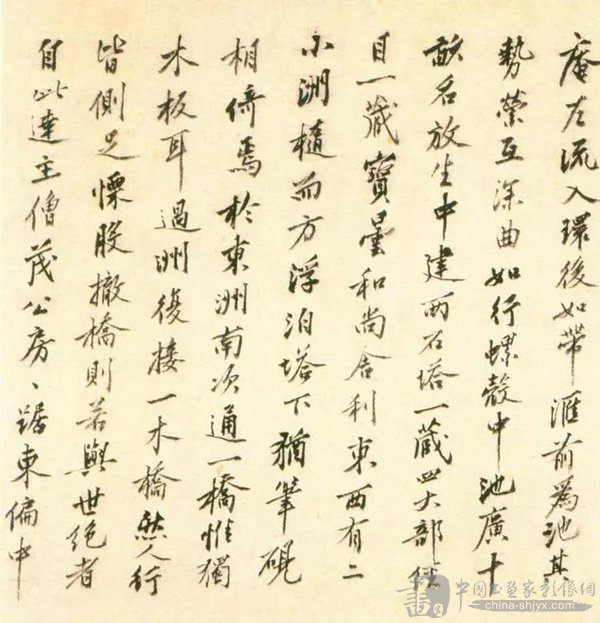 庵左流入環後如帶滙前為池其
勢縈互深曲如行螺殼中池廣十
畝名放生中建兩石塔一藏四大部經
目一藏寶曇和尚舍利東西有二
小洲橢而方浮泊塔下猶筆硯
相倚焉於東洲南次通一橋惟獨
木板耳過洲復接一木橋然人行
皆側足慄股撤橋則若與世絕者
自此達主僧茂公房、踞東偏中
中国书画家影像網
china-shjyx.com